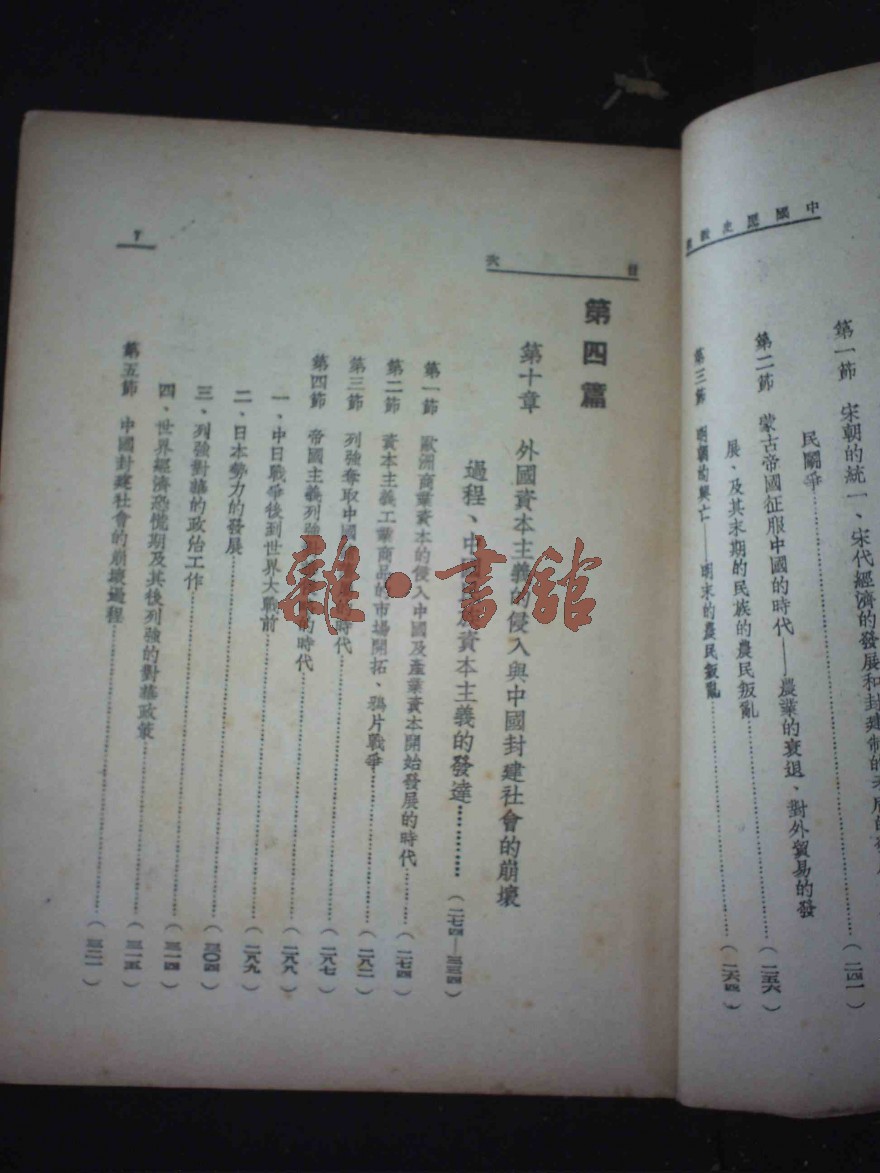 中國歷史教
第一節 宋朝的統一、宋代經濟的發展和封建制的
民鬭爭……（二四一）
第二節 蒙古帝國征服中國的時代——農業的衰退、對外貿易的發
展、及其末期的民族的農民叛亂……（二五六）
第三節 明朝的興亡——明末的農民叛亂……（二六四）
目次
第四篇
第十章 外國資本主義的侵入與中國封建社會的崩壞
過程、中國資本主義的發達……（二七四—三三四）
第一節 歐洲商業資本的侵入中國及產業資本開始發展的時代……（二七四）
第二節 資本主義工業商品的市場開拓、鴉片戰爭……（二八二）
第三節 列強奪取中國的時代……（二八七）
第四節 帝國主義列強的時代……（二八八）
一、中日戰爭後到世界大戰前……（二八九）
二、日本勢力的發展……（三〇四）
三、列強對華的政治工作……（三一四）
四、世界經濟恐慌期及其後列強的對華政策……（三一五）
第五節 中國封建社會的崩壞過程……（三二一）
雜·書館